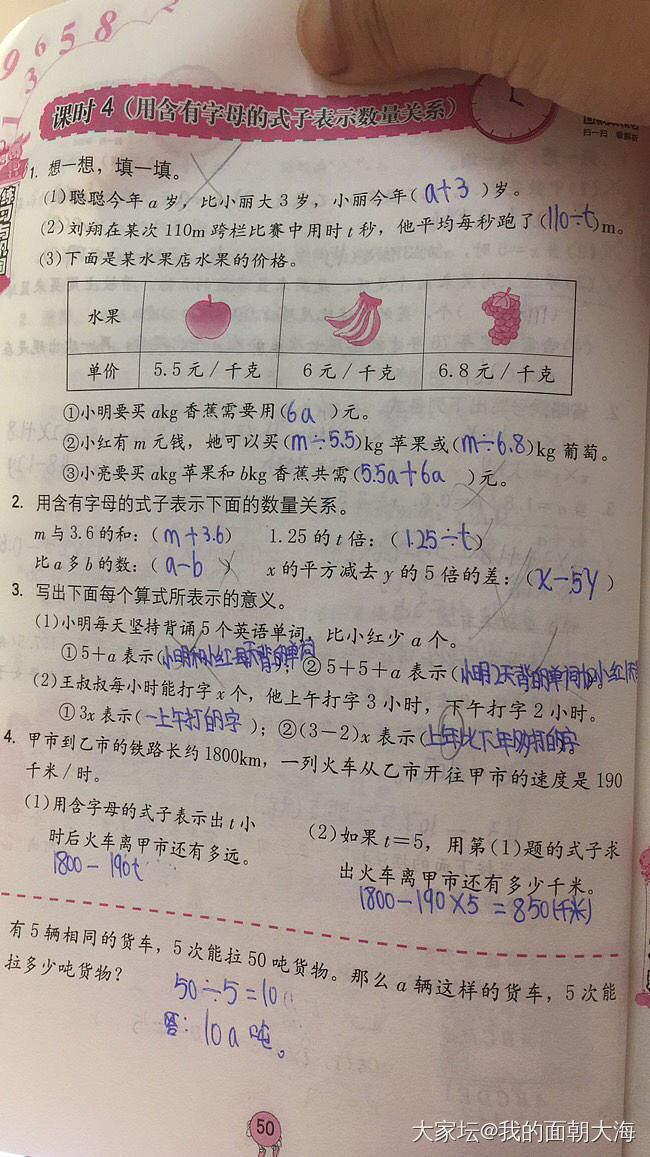 9 6 5 8
3
1
课时 4 (用含有字母的式子表示数量关系)
扫一扫 看解析
1. 想一想，填一填。
(1)聪聪今年 a 岁，比小丽大 3 岁，小丽今年(a+3)岁。
(2)刘翔在某次 110m 跨栏比赛中用时 t 秒，他平均每秒跑了(110÷t)m。
(3)下面是某水果店水果的价格。
水果
单价 5.5 元/千克 6 元/千克 6.8 元/千克
①小明要买 akg 香蕉需要用(6a)元。
②小红有 m 元钱，她可以买(m÷5.5)kg 苹果或(m÷6.8)kg 葡萄。
③小亮要买 akg 苹果和 bkg 香蕉共需(5.5a+6a)元。
2. 用含有字母的式子表示下面的数量关系。
m 与 3.6 的和：(m+3.6) 1.25 的 t 倍：(1.25÷t)
比 a 多 b 的数：(a-b) x 的平方减去 y 的 5 倍的差：(x-5y)
3. 写出下面每个算式所表示的意义。
(1)小明每天坚持背诵 5 个英语单词，比小红少 a 个。
①5+a 表示(小明和小红每天背的单词)；②5+5+a 表示(小明2天背的单词加小红
(2)王叔叔每小时能打字 x 个，他上午打字 3 小时，下午打字 2 小时。
①3x 表示(一上午打的字)；②(3-2)x 表示(上午比下午多打的字
4. 甲市到乙市的铁路长约 1800km，一列火车从乙市开往甲市的速度是 190
千米/时。
(1)用含字母的式子表示出 t 小
时后火车离甲市还有多远。
1800-190t
(2)如果 t=5，用第(1)题的式子求
出火车离甲市还有多少千米。
1800-190×5=850(千米)
有 5 辆相同的货车，5 次能拉 50 吨货物。那么 a 辆这样的货车，5 次能
拉多少吨货物？
50÷5=10
答：10a吨。
50
大家坛@我的面朝大海